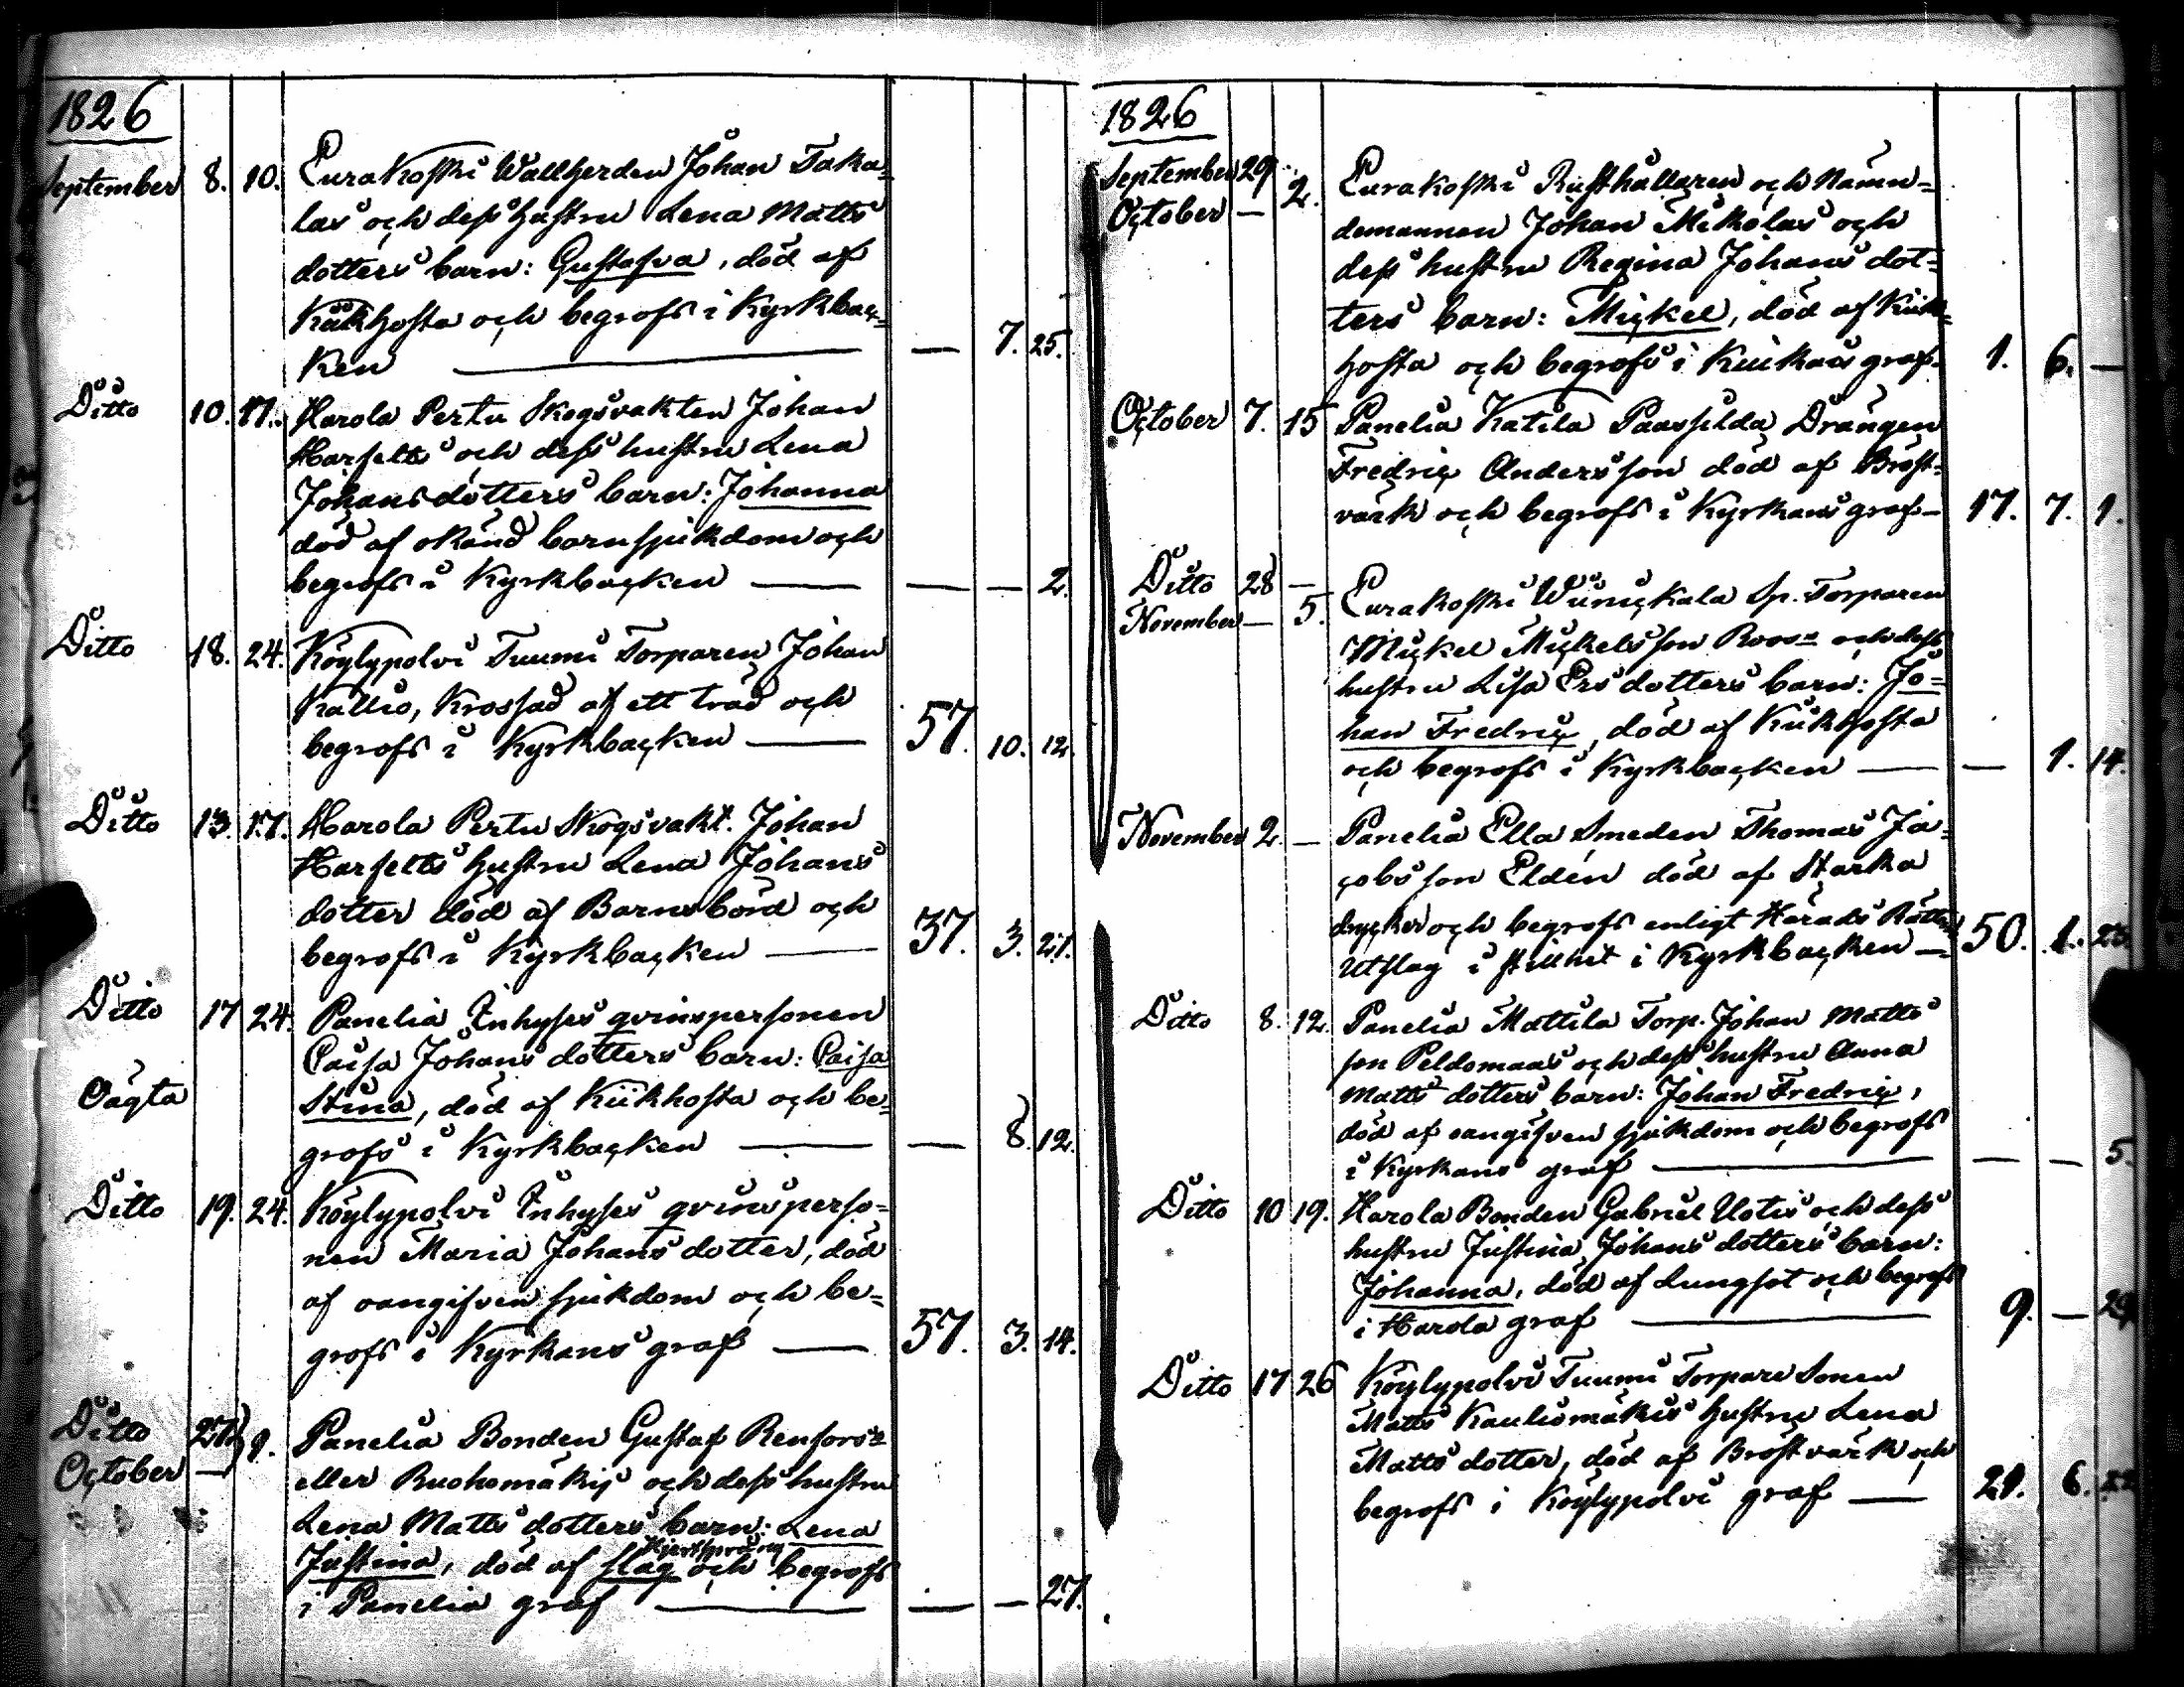 1826
September 8. 10. Eurakoski Wallherden Johan Taka=
las och dess hustru Lena Matts
dotters barn: Gustafva, död af
Kikhosta och begrofs i Kyrkbac=
ken — — 7. 25.
Ditto 10. 17. Harola Pertu Skogsvakten Johan
Harfelts och dess hustru Lena
Johansdotters barn: Johanna
död af okänd barnsjukdom och
begrofs i Kyrkbacken — — — 2.
Ditto 18. 24. Köylypolvi Tuumi Torparen Johan
Kallio, Krossad af ett träd och
begrofs i Kyrkbacken — 57. 10. 12.
Ditto 13. 17. Harola Pertu Skogsvakt. Johan
Harfelts hustru Lena Johans
dotter död af Barnsbörd och
begrofs i Kyrkbacken — 37. 3. 27.
Ditto 17 24. Panelia Inhyses qvinspersonen
Caisa Johans dotters barn: Caisa
Oägta Stina, död af Kikhosta och be=
grofs i Kyrkbacken — — 8. 12.
Ditto 19. 24. Köylypolvi Inhyses qvinsperso=
nen Maria Johans dotter, död
af oangifven sjukdom och be=
grofs i Kyrkans graf — 57. 3. 14.
Ditto 27. 1. Panelia Bonden Gustaf Renfors
October — eller Ruohomäkis och dess hustru
Lena Matts dotters barn: Lena
Hjertsprång
Justina, död af slag och begrofs
i Panelia graf — — — 27.
1826
September 29 2. Eurakoski Rusthållaren och Näm=
October — demannen Johan Mikolas och
dess hustru Regina Johans dot=
ters barn: Mickel, död af Kik=
hosta och begrofs i Kiukais graf. 1. 6. —
October 7. 15 Panelia Katila Drängen
Fredric Andersson död af Bröst=
värk och begrofs i Kyrkans graf — 17. 7. 1.
Ditto 28 — Eurakoski Winickala Sp. Torparen
November — 5. Mickel Mickelsson Roos och dess
hustru Lisa Ers dotters barn: Jo=
han Fredric, död af Kikhosta
och begrofs i Kyrkbacken — — 1. 14.
November 2. — Panelia Ella Smeden Thomas Ja=
cobsson Eldén död af Starka
drycker och begrofs enligt Härads Rättens
Utslag i stillhet i Kyrkbacken — 50. 1. 28.
Ditto 8. 12. Panelia Mattila Torp. Johan Matts
son Peldomaas och dess hustru Anna
Matts dotters barn: Johan Fredric,
död af oangifven sjukdom och begrofs
i Kyrkans graf — — — 5.
Ditto 10 19. Harola Bonden Gabriel Uotis och dess
hustru Justina Johans dotters barn:
Johanna, död af Lungsot och begrofs
i Harola graf — 9. — 29
Ditto 17 26 Köylypolvi Tuumi Torpare Sonen
Matts Kauliomäkis hustru Lena
Matts dotter, död af Bröstvärk och
begrofs i Köylypolvi graf — 29. 6. 22